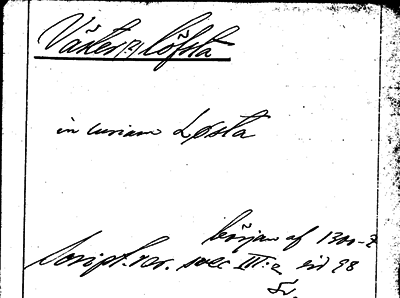 Väster(?) löfsta
in curiam Løsta
början af 1300-t
Script. rer. svec III: a sid 98
Fr.